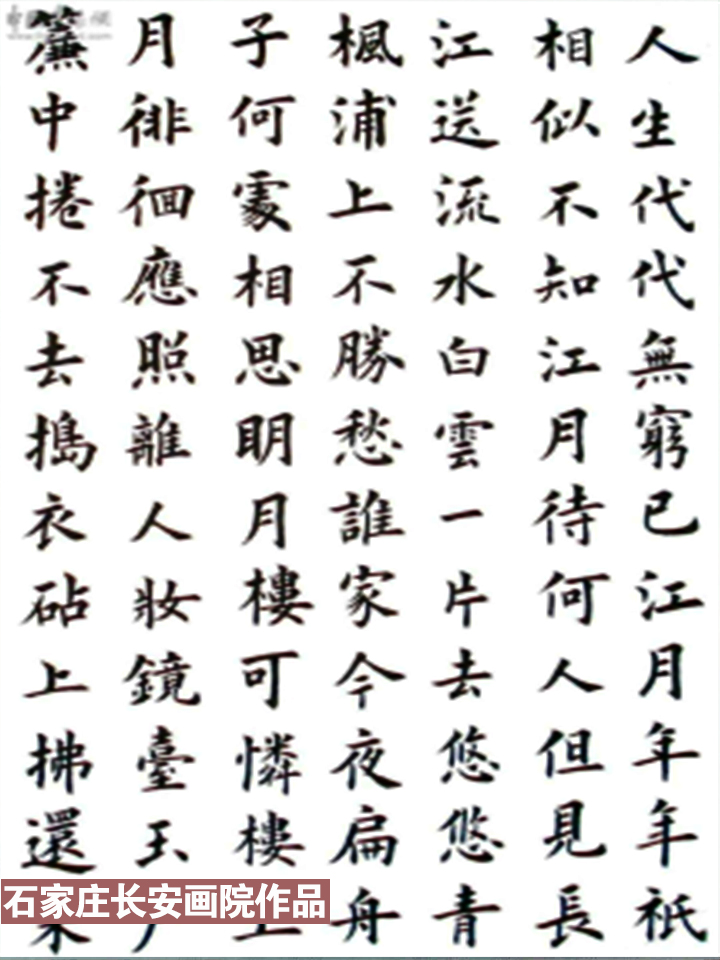 人生代代無窮已江月年年祇
相似不知江月待何人但見長
江送流水白雲一片去悠悠青
楓浦上不勝愁誰家今夜扁舟
子何處相思明月樓可憐樓上
月徘徊應照離人妝鏡臺玉戶
簾中捲不去搗衣砧上拂還來
石家庄长安画院作品